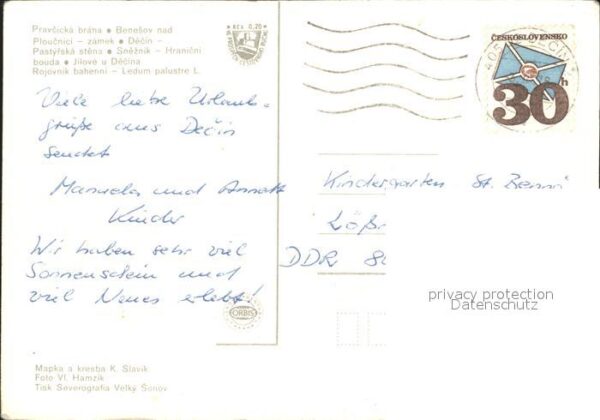 Pravčická brána • Benešov nad
Ploučnicí – zámek • Děčín –
Pastýřská stěna • Sněžník – Hraniční
bouda • Jílové u Děčína
Rojovník bahenní – Ledum palustre L.
Kčs 0,20
ČESKOSLOVENSKO
30h
Viele liebe Urlaubs-
grüße aus Dečin
sendet
Manuela und Annett
Kinder
Wir haben sehr viel
Sonnenschein und
viel Neues erlebt!
Kindergarten St. Benno
DDR 80
privacy protection
Datenschutz
ORBIS
Mapka a kresba K. Slavík
Foto Vl. Hamzík
Tisk Severografia Velký Šenov